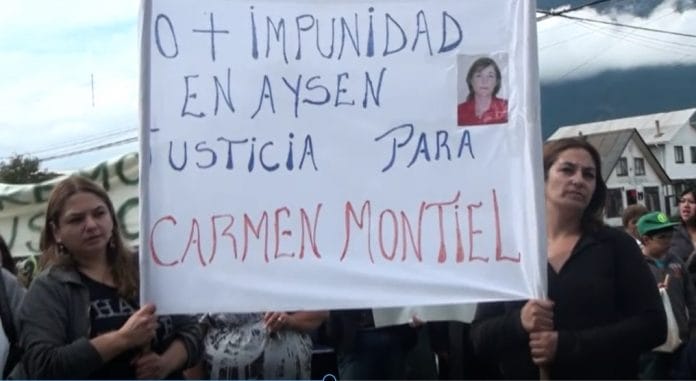 0 + IMPUNIDAD
EN AYSEN
JUSTICIA PARA
CARMEN MONTIEL